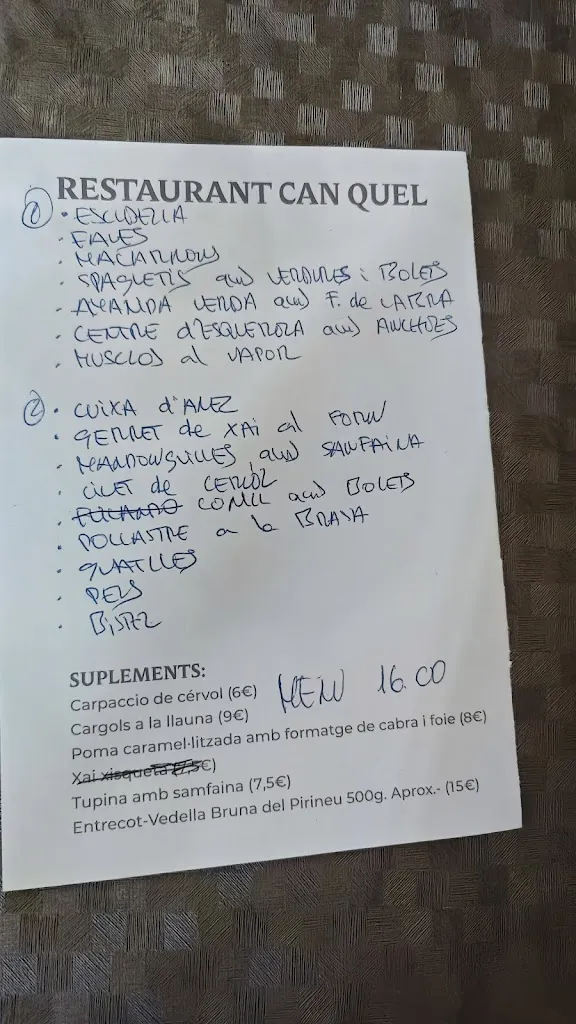 RESTAURANT CAN QUEL
① • ESCUDELLA
• FAVES
• MACARRONS
• SPAGUETIS amb VERDURES i BOLETS
• AMANIDA VERDA amb F. de CABRA
• CENTRE d'ESQUEROLA amb ANCHOES
• MUSCLOS al VAPOR
② • CUIXA d'ANEC
• GERRET de XAI al FORN
• MANDONGUILLES amb SANFAINA
• CIVET de CERVOL
• CONILL amb BOLETS
• POLLASTRE a la BRASA
• GUATLLES
• PEUS
• BISTEC
SUPLEMENTS:
Carpaccio de cérvol (6€) MENU 16.00
Cargols a la llauna (9€)
Poma caramel·litzada amb formatge de cabra i foie (8€)
Xai xisqueta 5€)
Tupina amb samfaina (7,5€)
Entrecot-Vedella Bruna del Pirineu 500g. Aprox.- (15€)